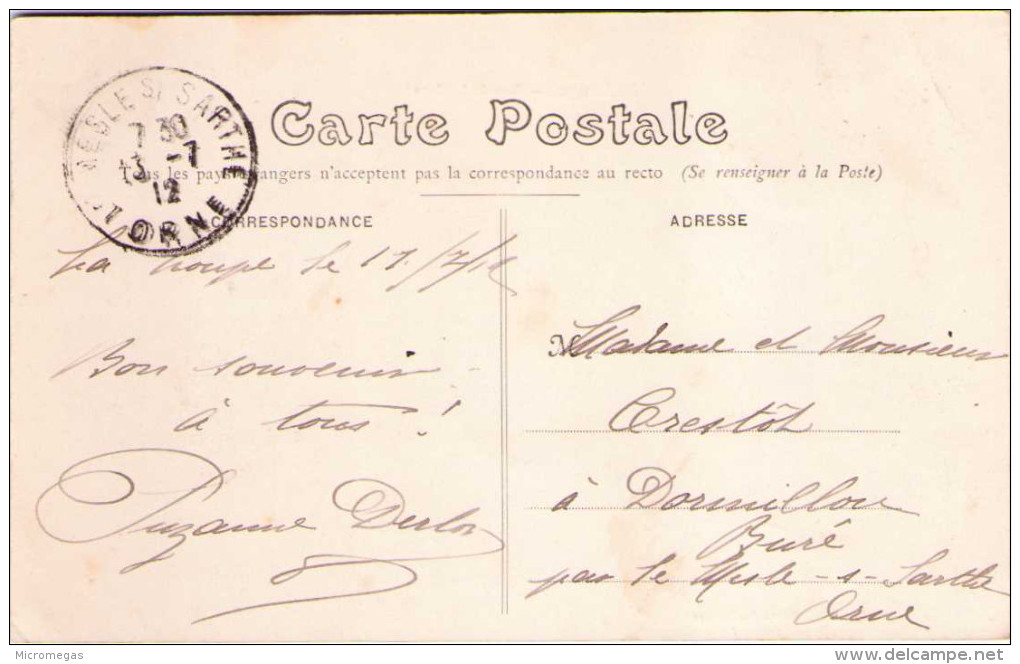 LE MESLE S/ SARTHE
7 30
13 -7
12
ORNE
Carte Postale
Tous les pays étrangers n'acceptent pas la correspondance au recto (Se renseigner à la Poste)
CORRESPONDANCE
ADRESSE
La le 17/7/12
Bon souvenir
à tous !
Suzanne
Madame et Monsieur
Crestôt
à Dormillou
Buré
par le Mesle-s-Sarthe
Orne
Micromegas
delcampe.net